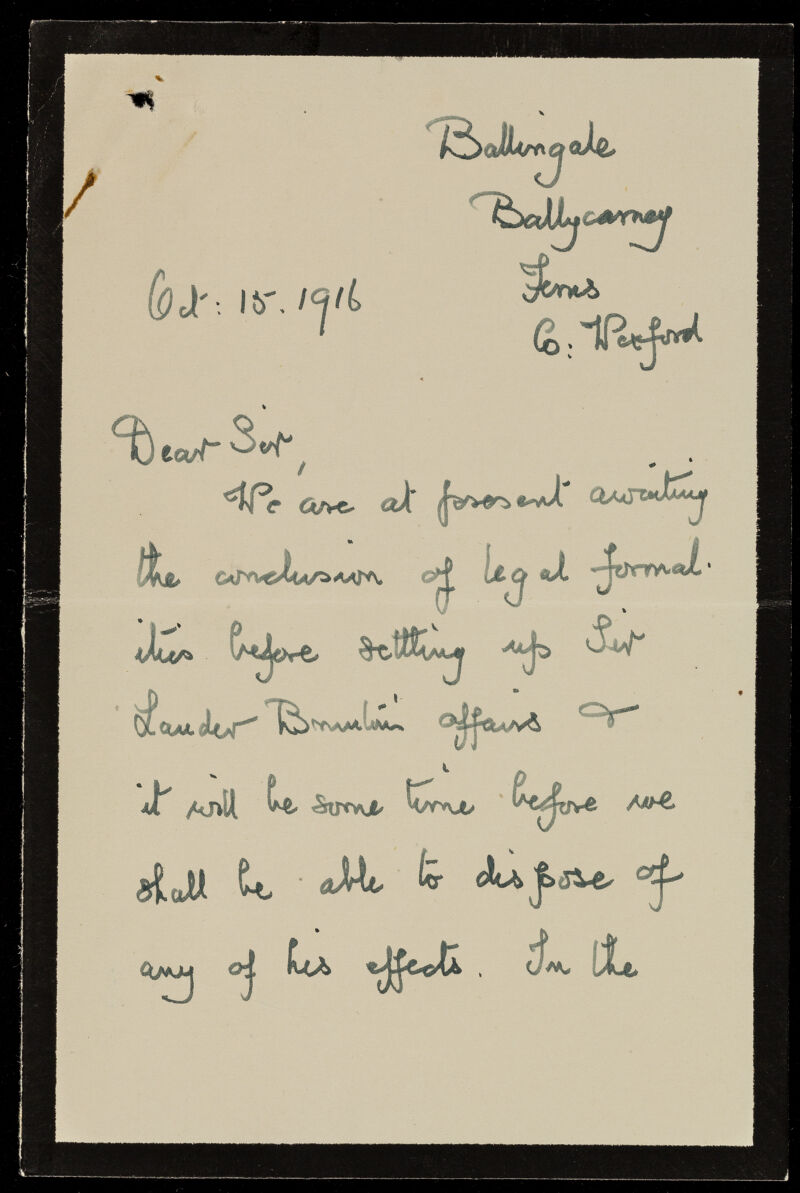 Ballingale
Ballycarney
Ferns
Co: Wexford
Oct: 15. 1916
Dear Sir,
We are at present awaiting
the conclusion of legal formal-
ities before settling up Sir
Lauder Brunton's affairs &
it will be some time before we
shall be able to dispose of
any of his effects. In the